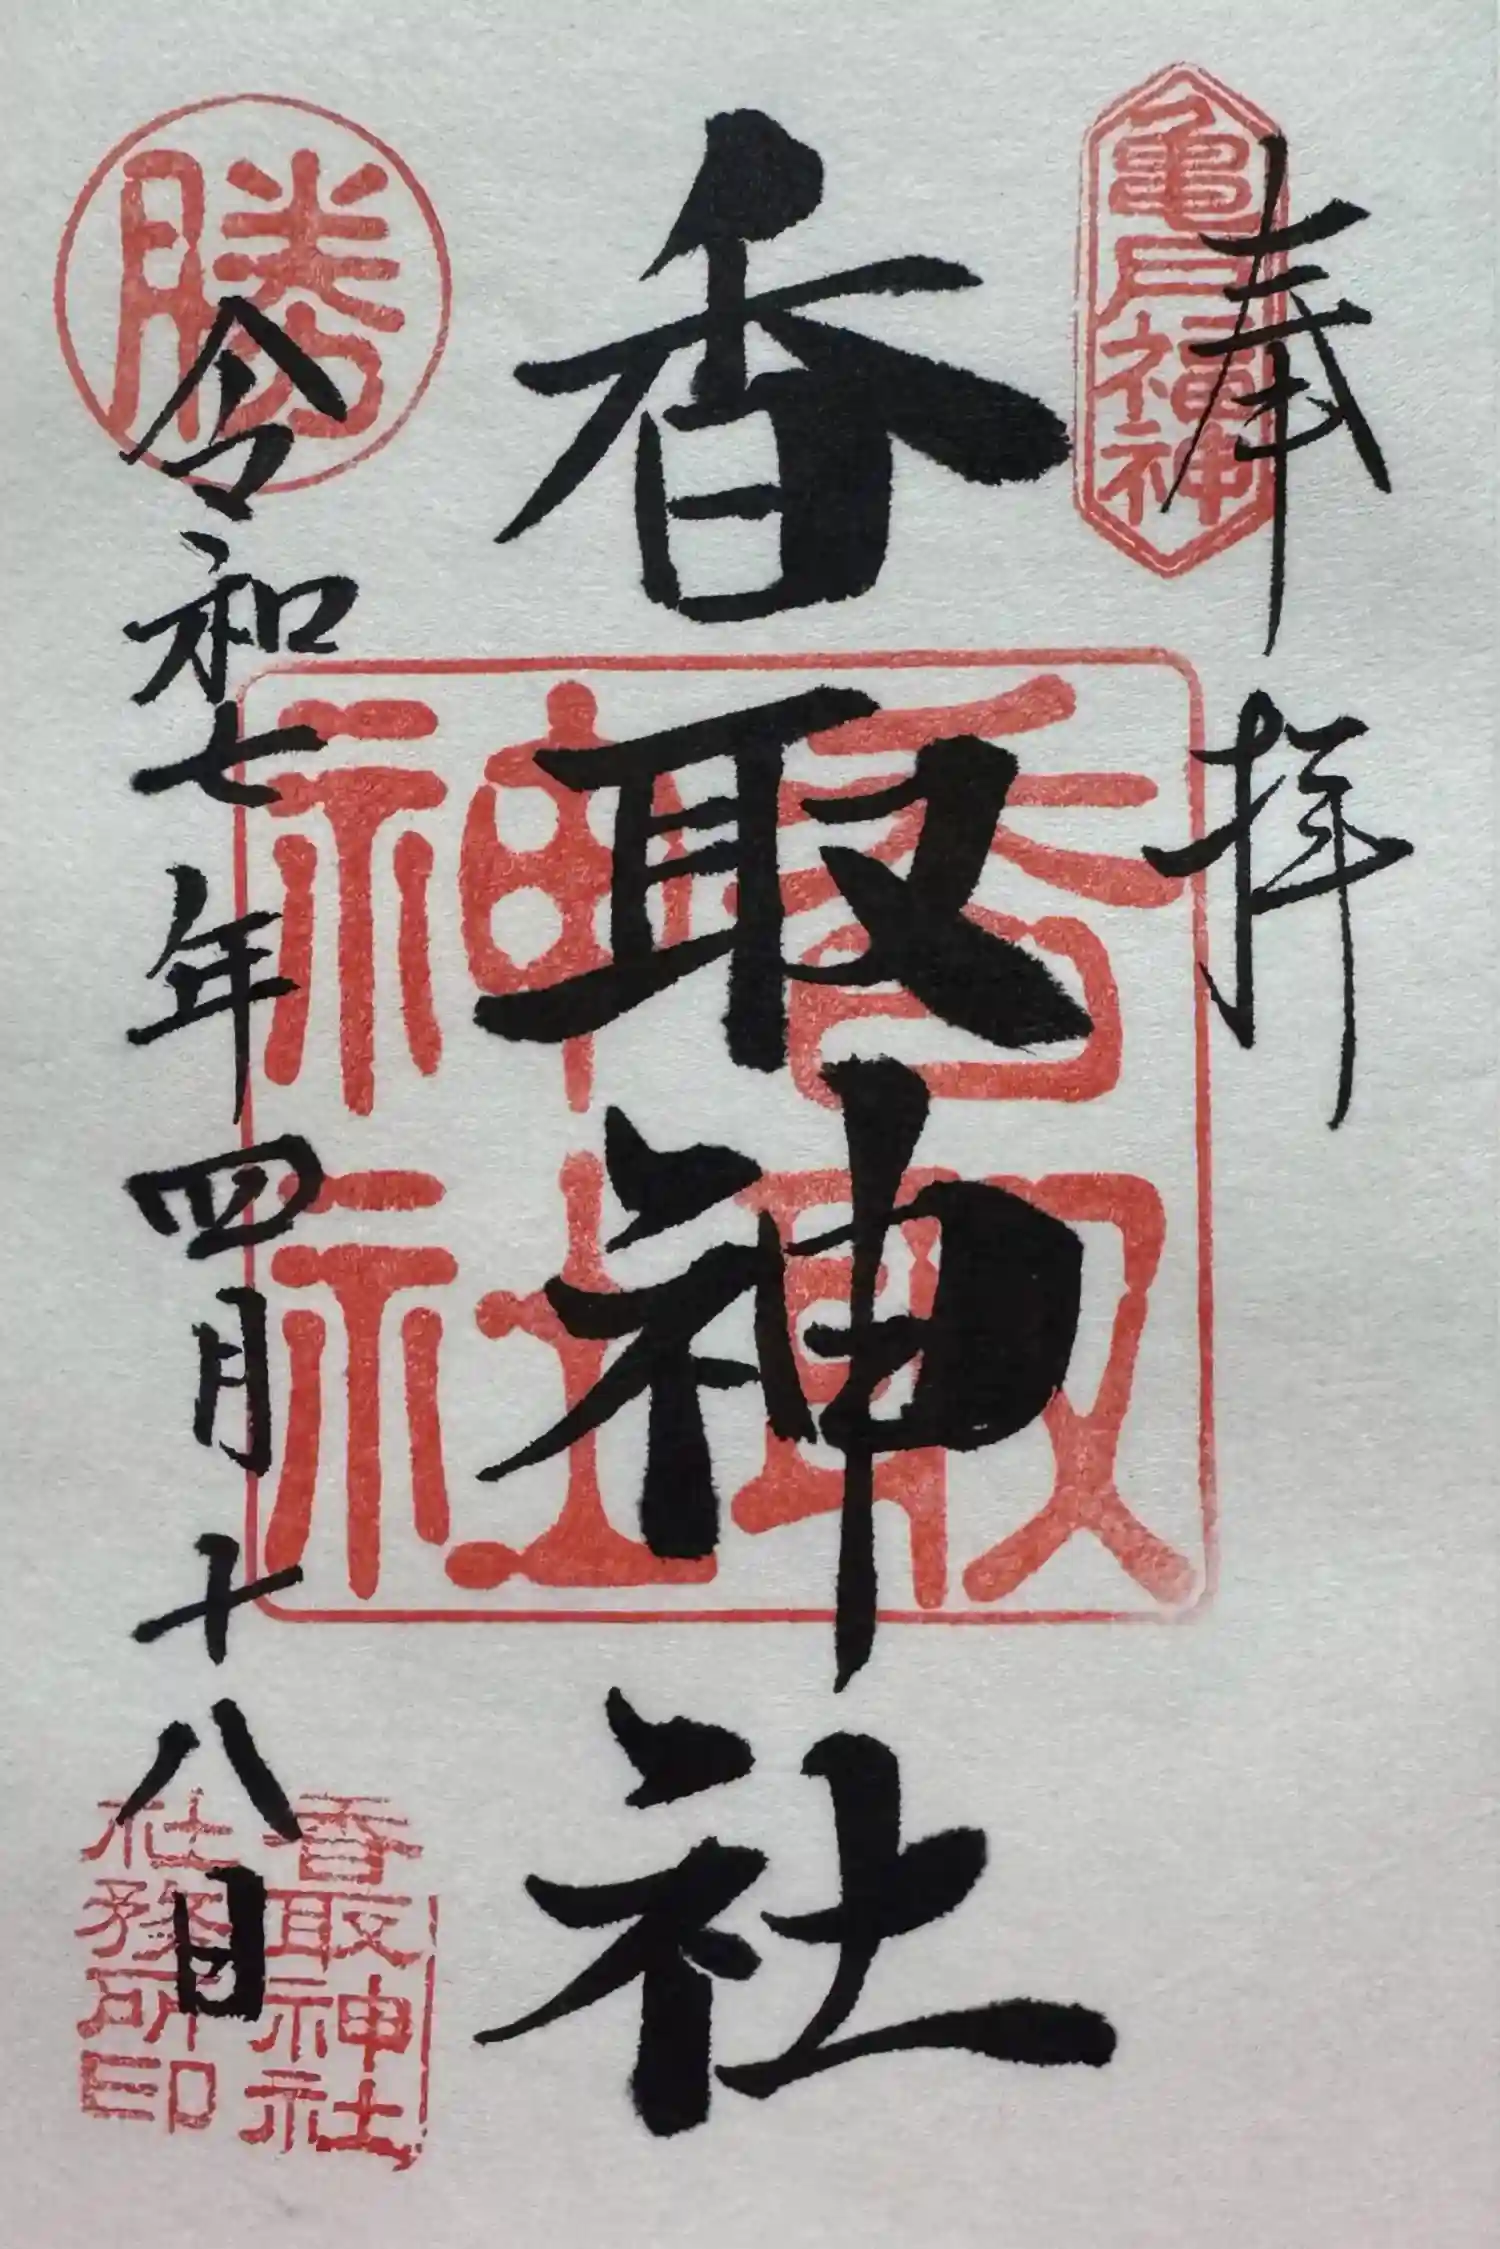 奉拝
亀戸福神
香取神社
香取
神社
勝
令和七年四月十八日
香取神社
社務所印